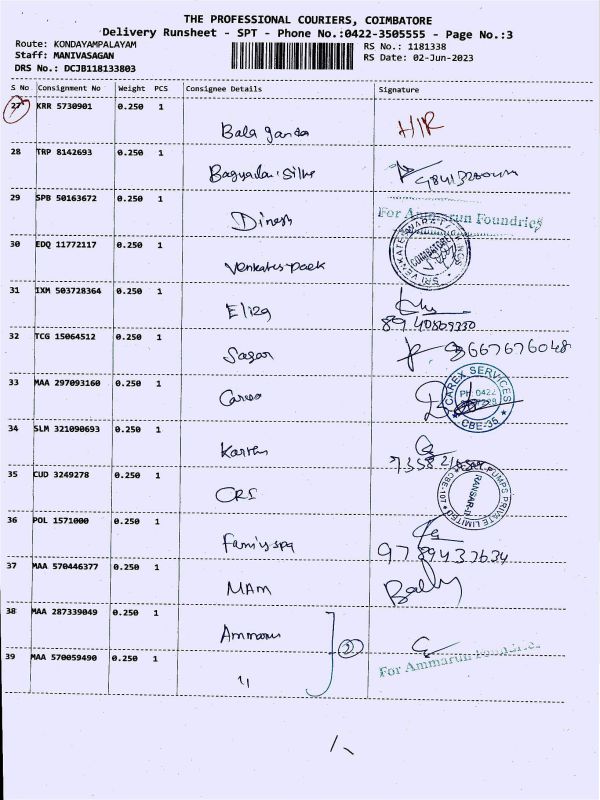 THE PROFESSIONAL COURIERS, COIMBATORE
Delivery Runsheet - SPT - Phone No.:0422-3505555 - Page No.:3
Route: KONDAYAMPALAYAM RS No.: 1181338
Staff: MANIVASAGAN RS Date: 02-Jun-2023
DRS No.: DCJB118133803
S No Consignment No Weight PCS Consignee Details Signature
27 KRR 5730901 0.250 1
Bala ganda
28 TRP 8142693 0.250 1
29 SPB 50163672 0.250 1
Dinesh For Ammarun Foundries
30 EDQ 11772117 0.250 1
SRI VENKATESWARA COIMBATORE
31 IXM 503728364 0.250 1
Eliza
8940869330
32 TCG 15064512 0.250 1
Sagar 9667676048
33 MAA 297093160 0.250 1
Carex CAREX SERVICES PH: 0422 CBE-35
34 SLM 321090693 0.250 1
35 CUD 3249278 0.250 1
CRI PUMPS PRIVATE LIMITED CBE-107
36 POL 1571000 0.250 1
9789437634
37 MAA 570446377 0.250 1
MAM
38 MAA 287339049 0.250 1
Ammarun 2
39 MAA 570059490 0.250 1
" For Ammarun Foundries